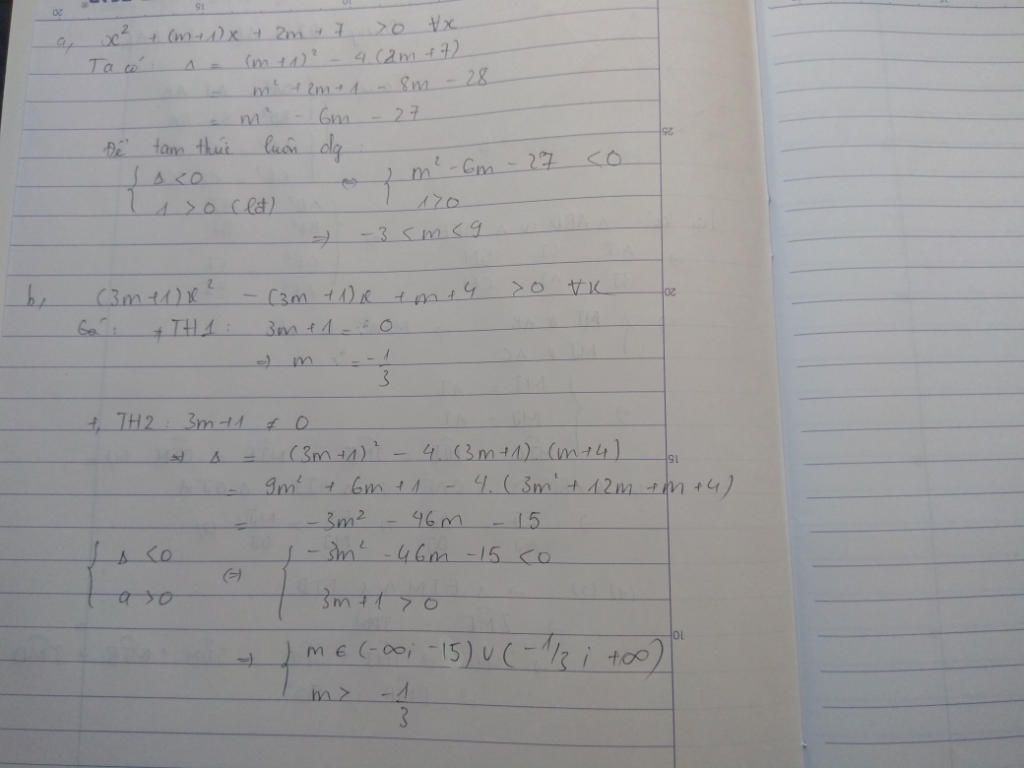 a, x² + (m+1)x + 2m + 7 > 0 ∀x
Ta có: Δ = (m+1)² - 4(2m+7)
= m² + 2m + 1 - 8m - 28
= m² - 6m - 27
Để tam thức luôn dg
{ Δ < 0 ⇔ { m² - 6m - 27 < 0
1 > 0 (lđ) 1 > 0
⇒ -3 < m < 9
b, (3m+1)x² - (3m+1)x + m + 4 > 0 ∀x
+ TH1: 3m + 1 = 0
⇒ m = -1/3
+, TH2: 3m+1 ≠ 0
⇒ Δ = (3m+1)² - 4.(3m+1)(m+4)
= 9m² + 6m + 1 - 4.(3m² + 12m + m + 4)
= -3m² - 46m - 15
{ Δ < 0 (=) { -3m² - 46m - 15 < 0
a > 0 3m + 1 > 0
⇒ { m ∈ (-∞; -15) ∪ (-1/3; +∞)
m > -1/3
25
20
15
10